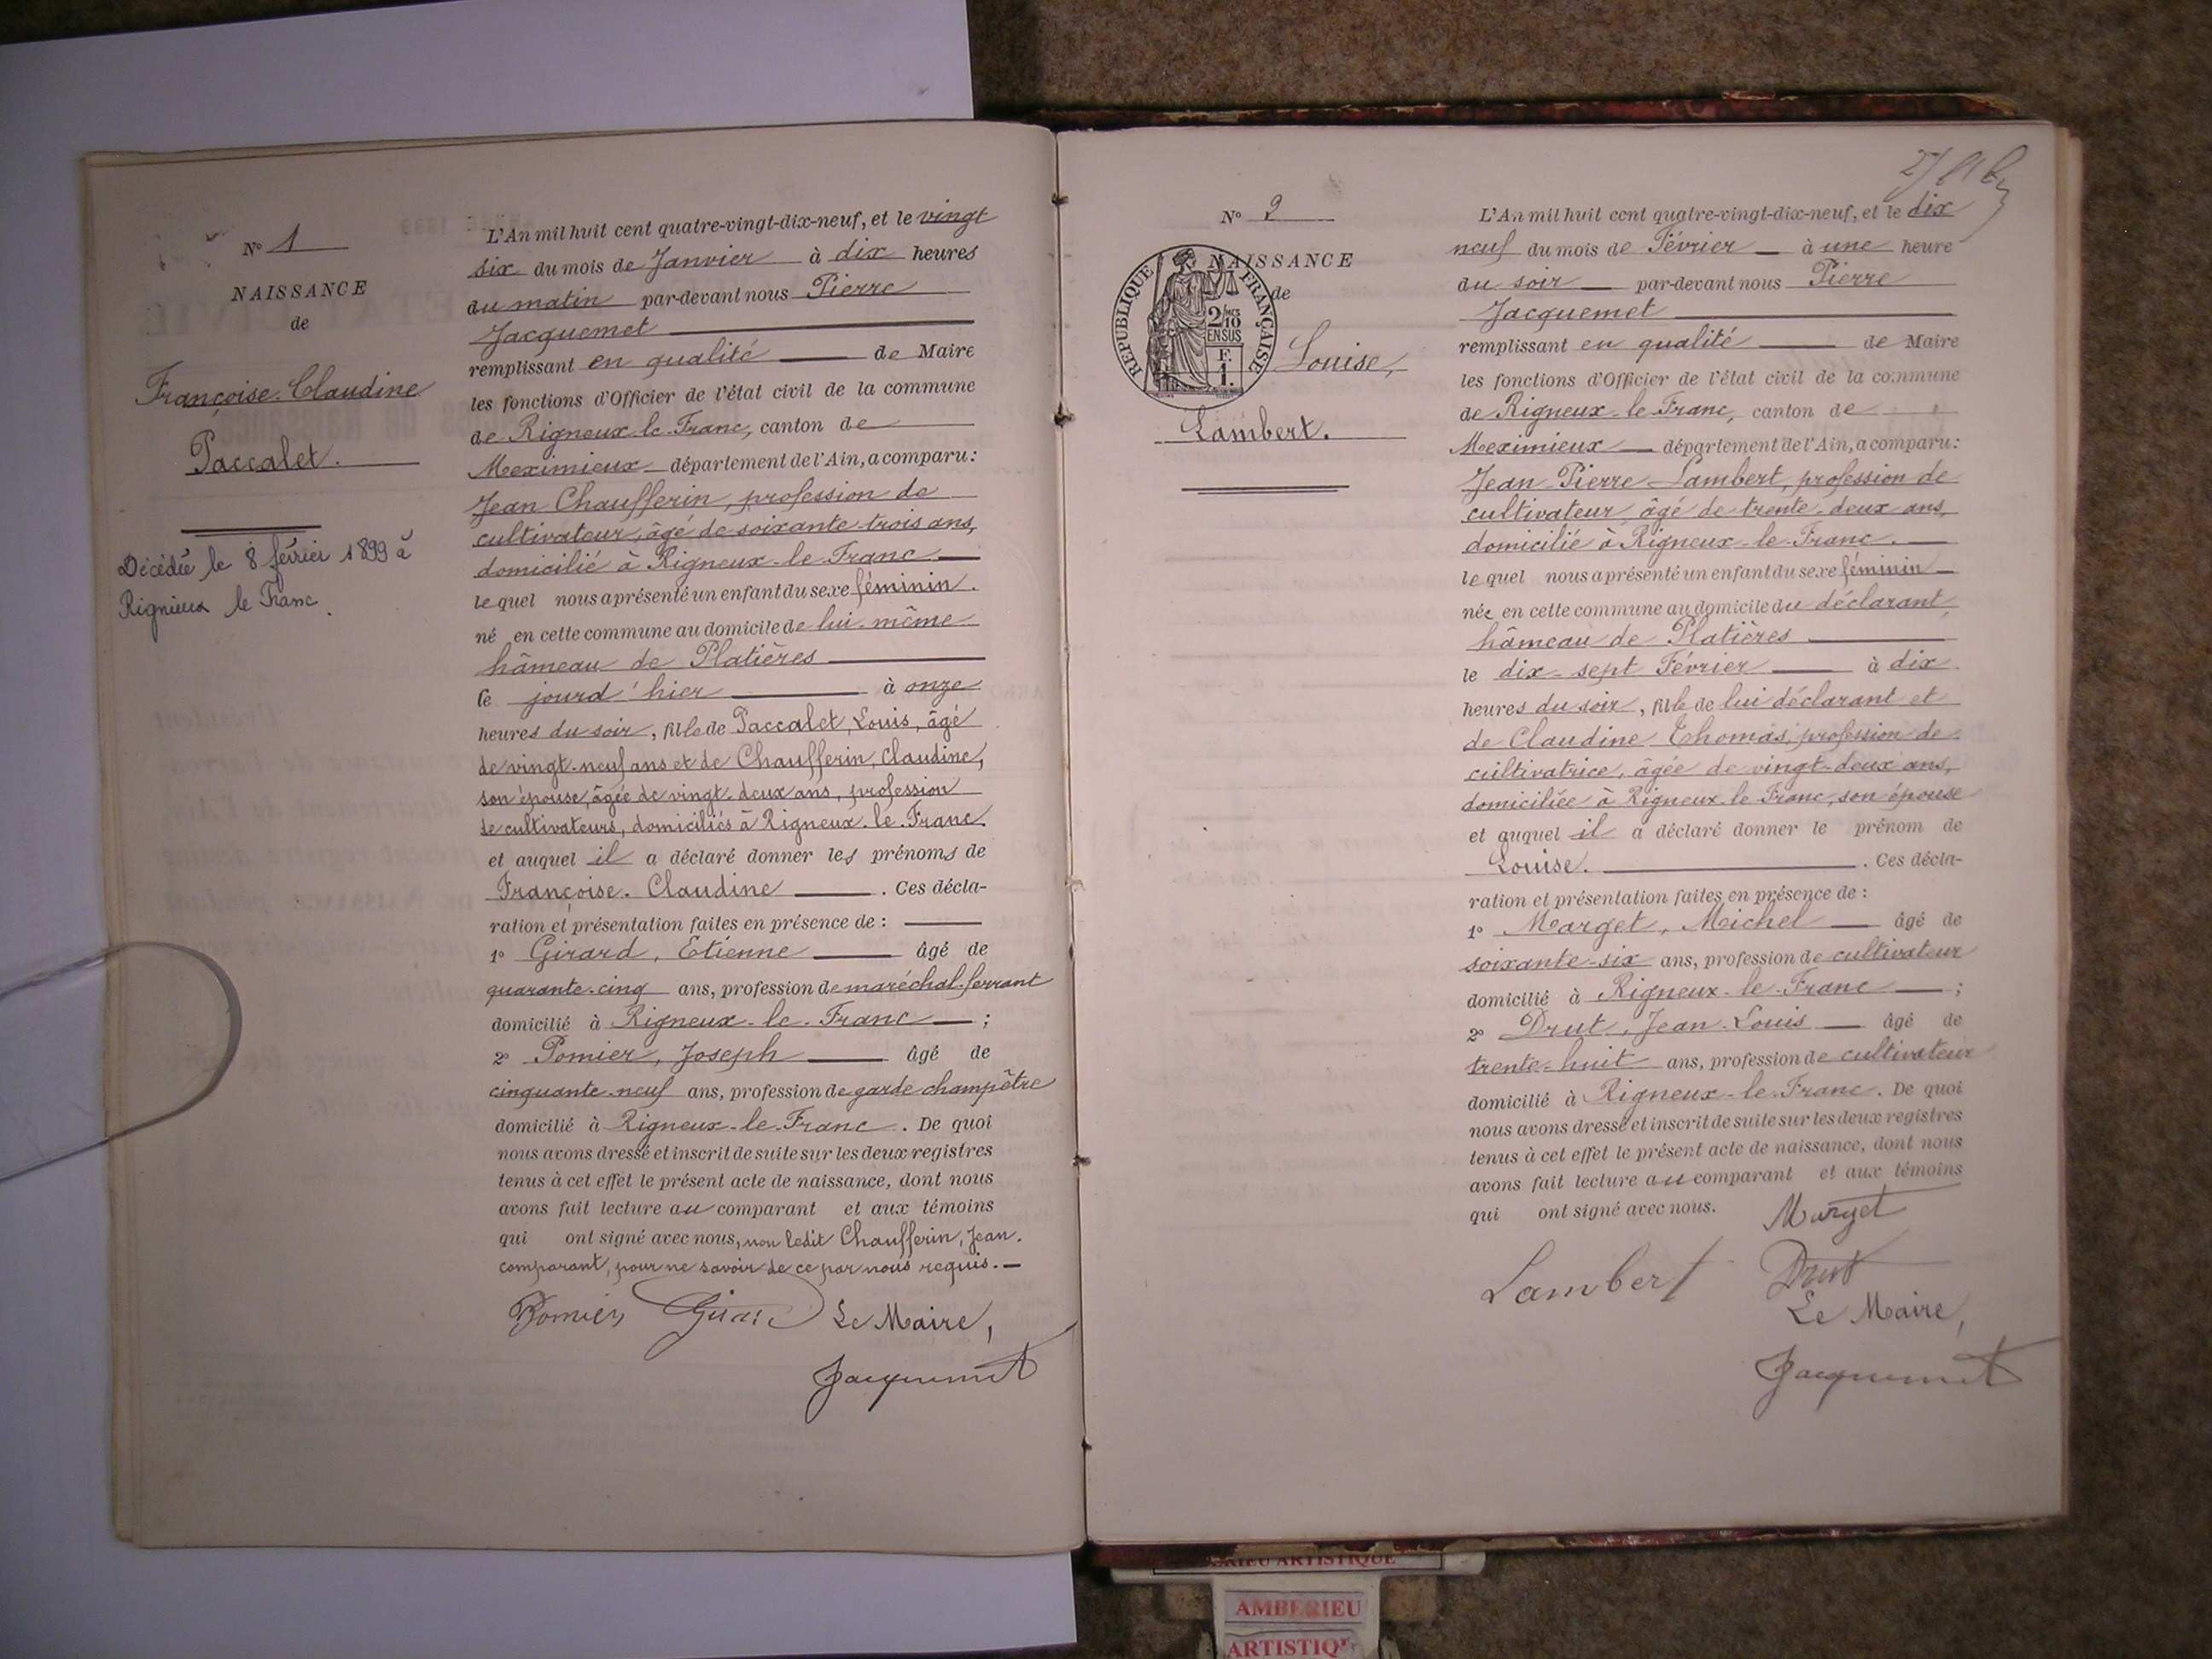 Nº 1
NAISSANCE
de
Françoise-Claudine
Paccalet.
Décédée le 8 février 1899 à
Rignieux le Franc.
L'An mil huit cent quatre-vingt-dix-neuf, et le vingt
six du mois de Janvier à dix heures
du matin par-devant nous Pierre
Jacquemet
remplissant en qualité de Maire
les fonctions d'Officier de l'état civil de la commune
de Rigneux-le-Franc, canton de
Meximieux département de l'Ain, a comparu:
Jean Chaufferin, profession de
cultivateur, âgé de soixante-trois ans,
domicilié à Rigneux-le-Franc.
lequel nous a présenté un enfant du sexe féminin.
né en cette commune au domicile de lui-même
hâmeau de Platières
le jourd'hier à onze
heures du soir, fille de Paccalet, Louis, âgé
de vingt-neuf ans et de Chaufferin, Claudine,
son épouse, âgée de vingt-deux ans, profession
de cultivateurs, domiciliés à Rigneux-le-Franc.
et auquel il a déclaré donner les prénoms de
Françoise-Claudine. Ces décla-
ration et présentation faites en présence de :
1º Girard, Etienne âgé de
quarante-cinq ans, profession de maréchal-ferrant
domicilié à Rigneux-le-Franc ;
2º Pomier, Joseph âgé de
cinquante-neuf ans, profession de garde champêtre
domicilié à Rigneux-le-Franc. De quoi
nous avons dressé et inscrit de suite sur les deux registres
tenus à cet effet le présent acte de naissance, dont nous
avons fait lecture au comparant et aux témoins
qui ont signé avec nous, non ledit Chaufferin, Jean.
comparant, pour ne savoir de ce par nous requis.
Pomier Girard Le Maire,
Jacquemet
Nº 2
NAISSANCE
de
REPUBLIQUE FRANÇAISE
2/10
EN SUS
F.
1.
Louise,
Lambert.
L'An mil huit cent quatre-vingt-dix-neuf, et le dix
neuf du mois de Février à une heure
du soir par-devant nous Pierre
Jacquemet
remplissant en qualité de Maire
les fonctions d'Officier de l'état civil de la commune
de Rigneux-le-Franc, canton de
Meximieux département de l'Ain, a comparu:
Jean-Pierre Lambert, profession de
cultivateur, âgé de trente-deux ans,
domicilié à Rigneux-le-Franc.
lequel nous a présenté un enfant du sexe féminin
née en cette commune au domicile du déclarant
hâmeau de Platières
le dix-sept Février à dix
heures du soir, fille de lui déclarant et
de Claudine Thomas, profession de
cultivatrice, âgée de vingt-deux ans,
domiciliée à Rigneux-le-Franc, son épouse
et auquel il a déclaré donner le prénom de
Louise. Ces décla-
ration et présentation faites en présence de :
1º Marget, Michel âgé de
soixante-six ans, profession de cultivateur
domicilié à Rigneux-le-Franc ;
2º Drut, Jean-Louis âgé de
trente-huit ans, profession de cultivateur
domicilié à Rigneux-le-Franc. De quoi
nous avons dressé et inscrit de suite sur les deux registres
tenus à cet effet le présent acte de naissance, dont nous
avons fait lecture au comparant et aux témoins
qui ont signé avec nous. Marget
Lambert Drut
Le Maire,
Jacquemet
ARTISTIQUE
AMBERIEU
ARTISTIQ